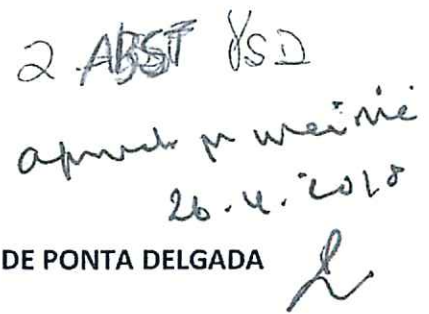 2 ABST PSD
aprovado p maioria
26.4.2018
DE PONTA DELGADA